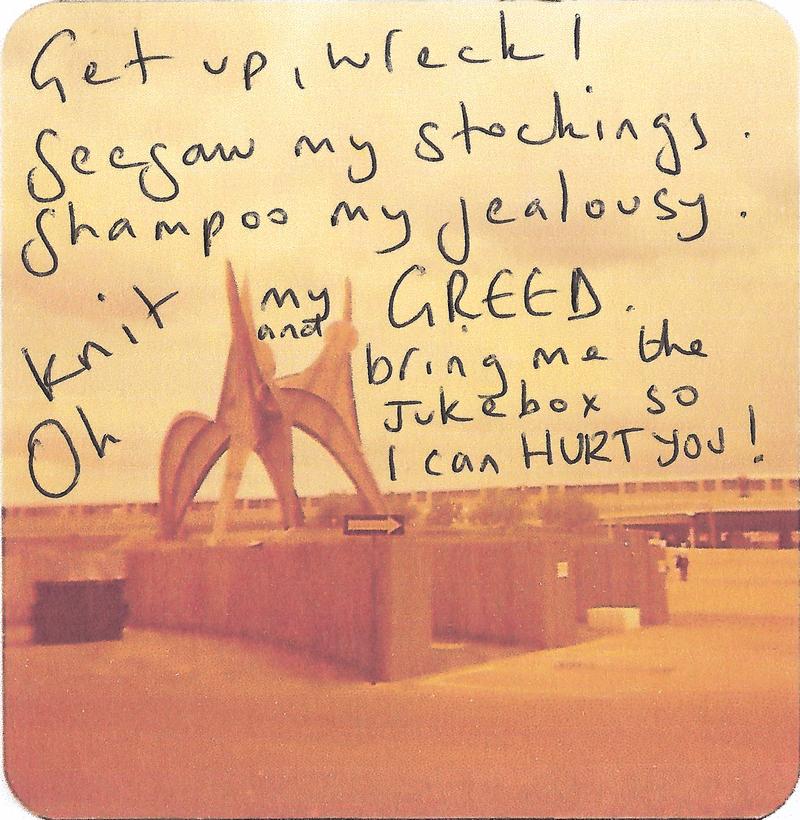 Get up, wreck!
Seesaw my stockings.
Shampoo my jealousy.
Knit my GREED.
Oh and bring me the
Jukebox so
I can HURT YOU!